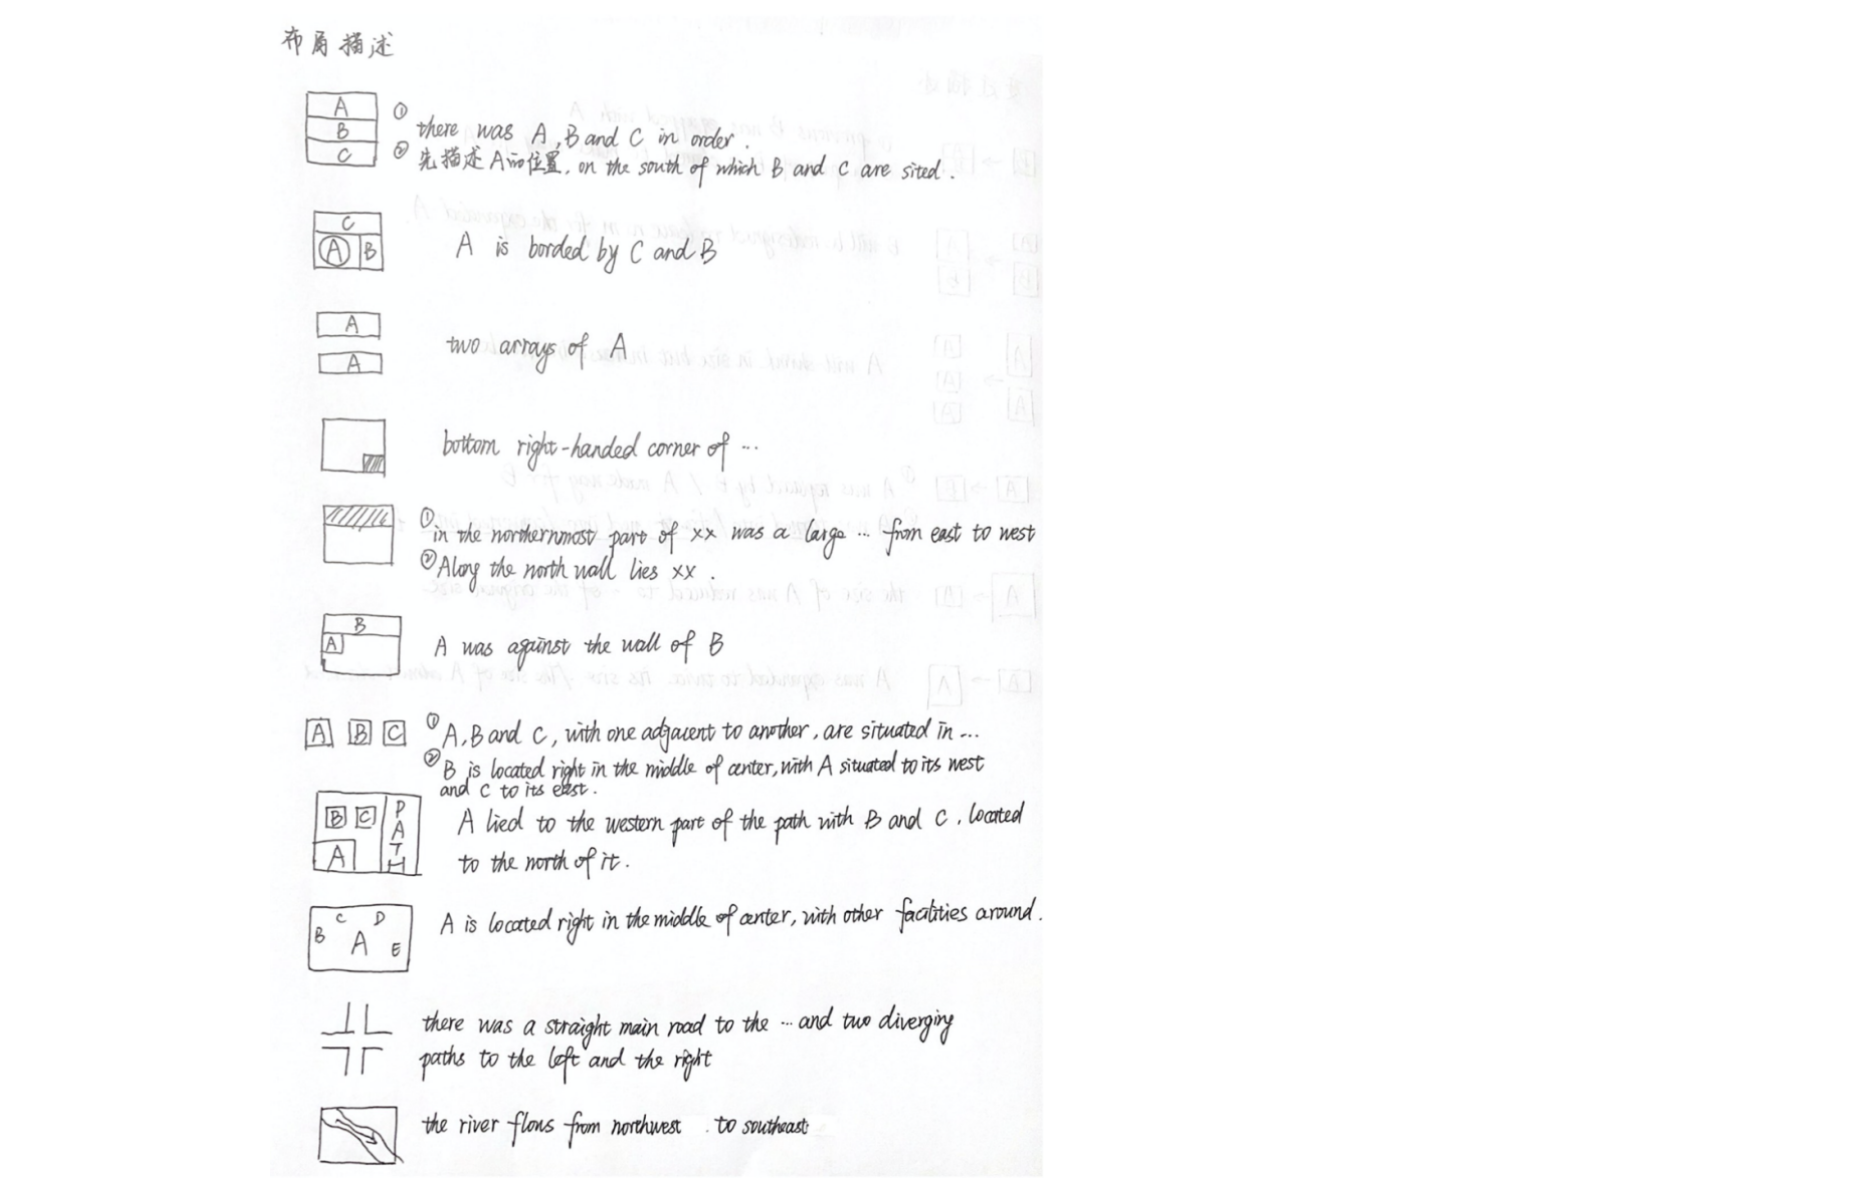 布局描述
A
B
C
① there was A, B and C in order.
② 先描述A的位置, on the south of which B and C are sited.
C
A B
A is borded by C and B
A
A
two arrays of A
bottom right-handed corner of ...
① in the northernmost part of xx was a large ... from east to west
② Along the north wall lies xx.
B
A
A was against the wall of B
A B C
① A, B and C, with one adjacent to another, are situated in ...
② B is located right in the middle of center, with A situated to its west
and C to its east.
B C
A
PATH
A lied to the western part of the path with B and C, located
to the north of it.
C D
B A E
A is located right in the middle of center, with other facilities around.
there was a straight main road to the ... and two diverging
paths to the left and the right
the river flows from northwest to southeast